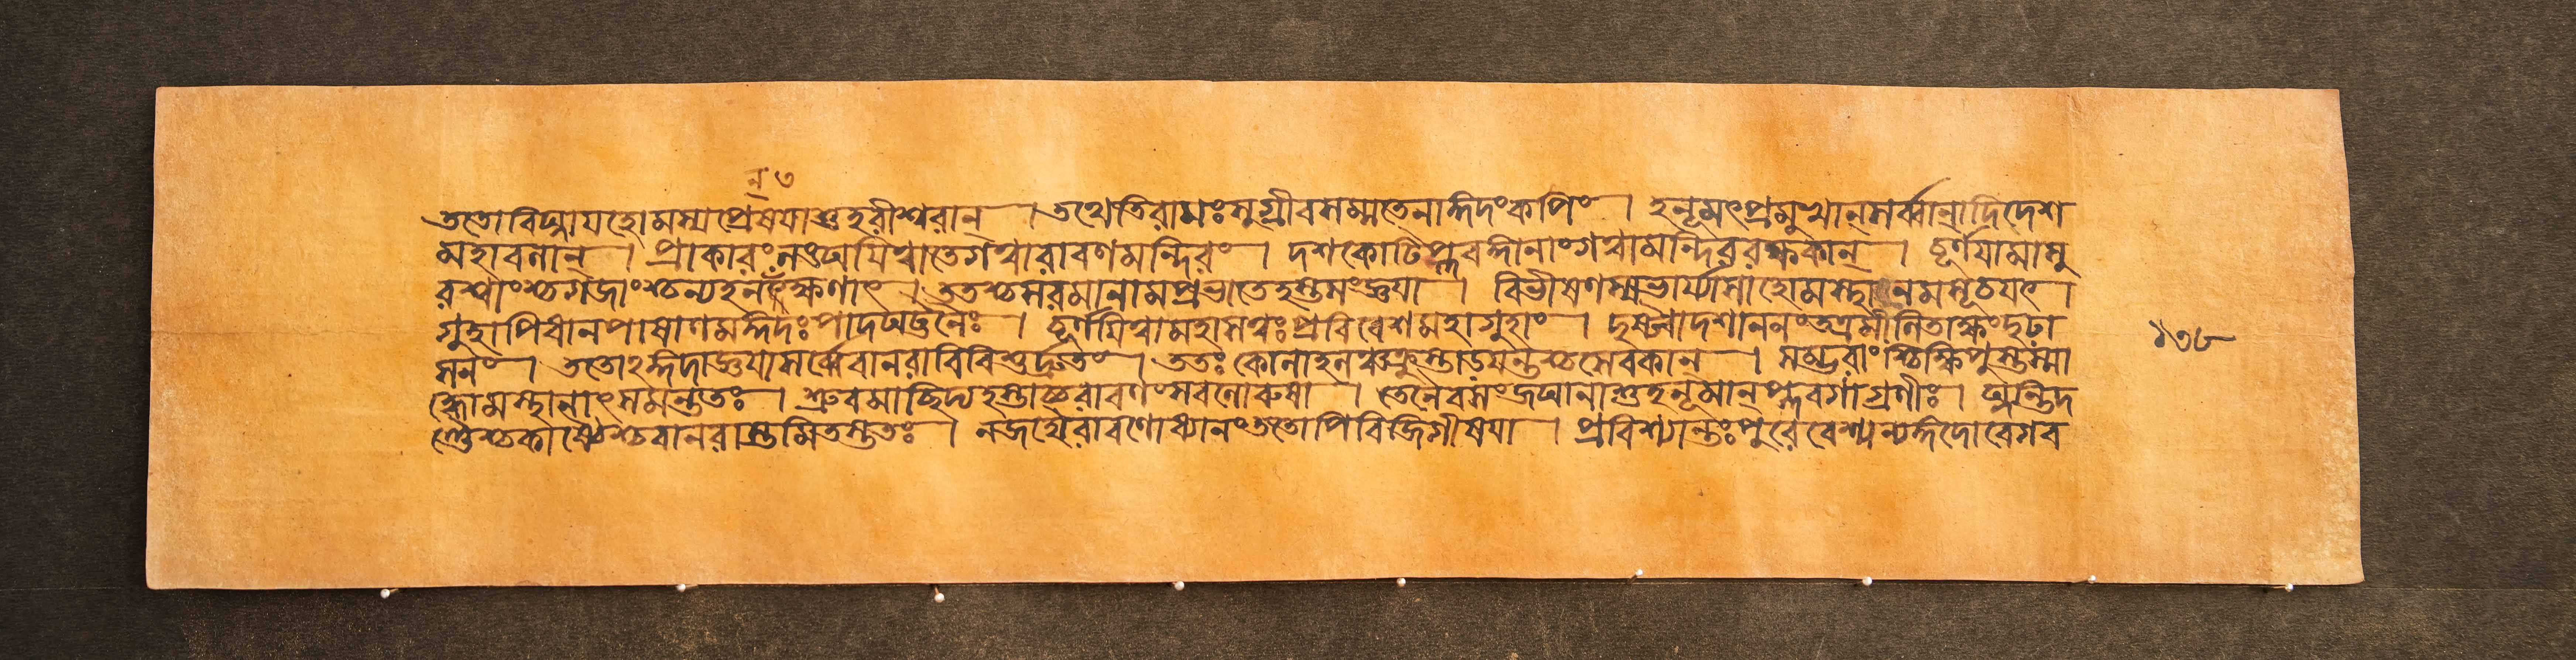 ন্ ৩
ততোবিঘ্নাযহোমস্যপ্রেষযাশুহরীশ্বরান্ । তথেতিরামঃসুগ্রীবসম্মতেনাঙ্গদংকপিং । হনূমৎপ্রমুখান্সর্ব্বান্নাদিদেশ
মহাবলান্ । প্রাকারংলংঘযিত্বাতেগত্বারাবণমন্দিরং । দশকোটিপ্লবঙ্গানাংগত্বামন্দিররক্ষকান্ । চূর্ণযামাসু
রশ্বাংশ্চগজাংশ্চন্যহনৎক্ষণাৎ । ততশ্চসরমানামপ্রভাতেহস্তসংজ্ঞযা । বিভীষণস্যভার্য্যাসাহোমস্থানমসূচযৎ ।
গুহাপিধানপাষাণমঙ্গদঃপাদঘট্টনৈঃ । চূর্ণযিত্বামহাসত্বঃপ্রবিবেশমহাগুহাং । দৃষ্ট্বাদশাননংতত্রমীলিতাক্ষংদৃঢা
সনং । ততোঽঙ্গদাজ্ঞযাসর্ব্বেবানরাবিবিশুর্দ্রুতং । ততঃকোলাহলঞ্চক্রুস্তাডযন্তশ্চসেবকান্ । সম্ভারাংশ্চিক্ষিপুস্তস্মা
দ্ধোমস্থানাৎসমন্ততঃ । শ্রুবমাচ্ছিদ্যহস্তাচ্চরাবণংসবলোরুষা । তেনৈবসংজঘানাশুহনূমান্প্লবগাগ্রণীঃ । ঘ্নন্তিদ
ন্তৈশ্চকাষ্ঠৈশ্চবানরাস্তমিতস্ততঃ । নজহৌরাবণোধ্যানংততোপিবিজিগীষযা । প্রবিশ্যান্তঃপুরেবেশ্মন্যঙ্গদোবেগব
১৩৮